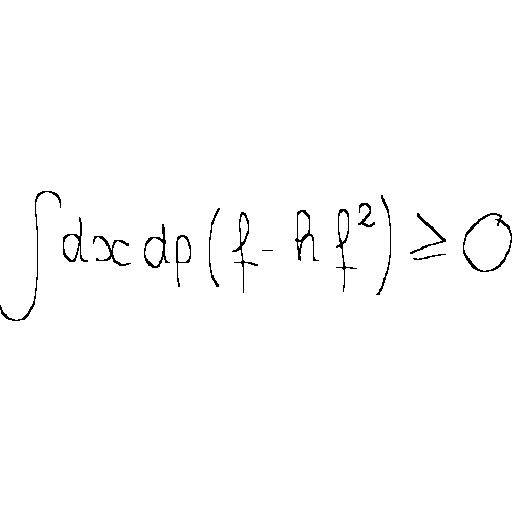 ∫dxdp(f-hf²)≥0